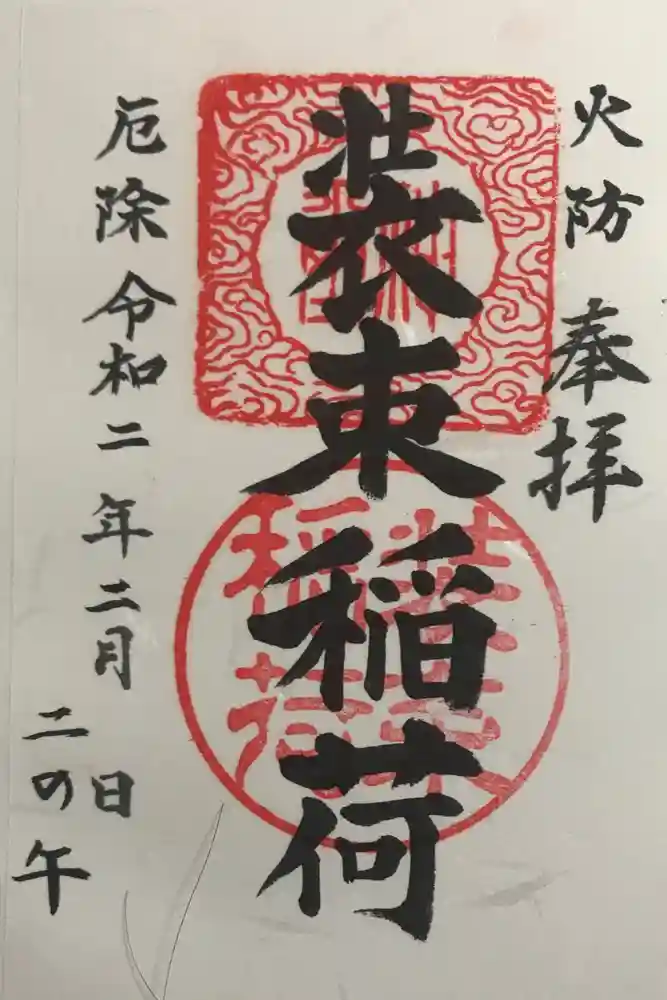 火防 奉拝
装束稲荷
厄除 令和二年二月 日
二の午
装束
稲荷